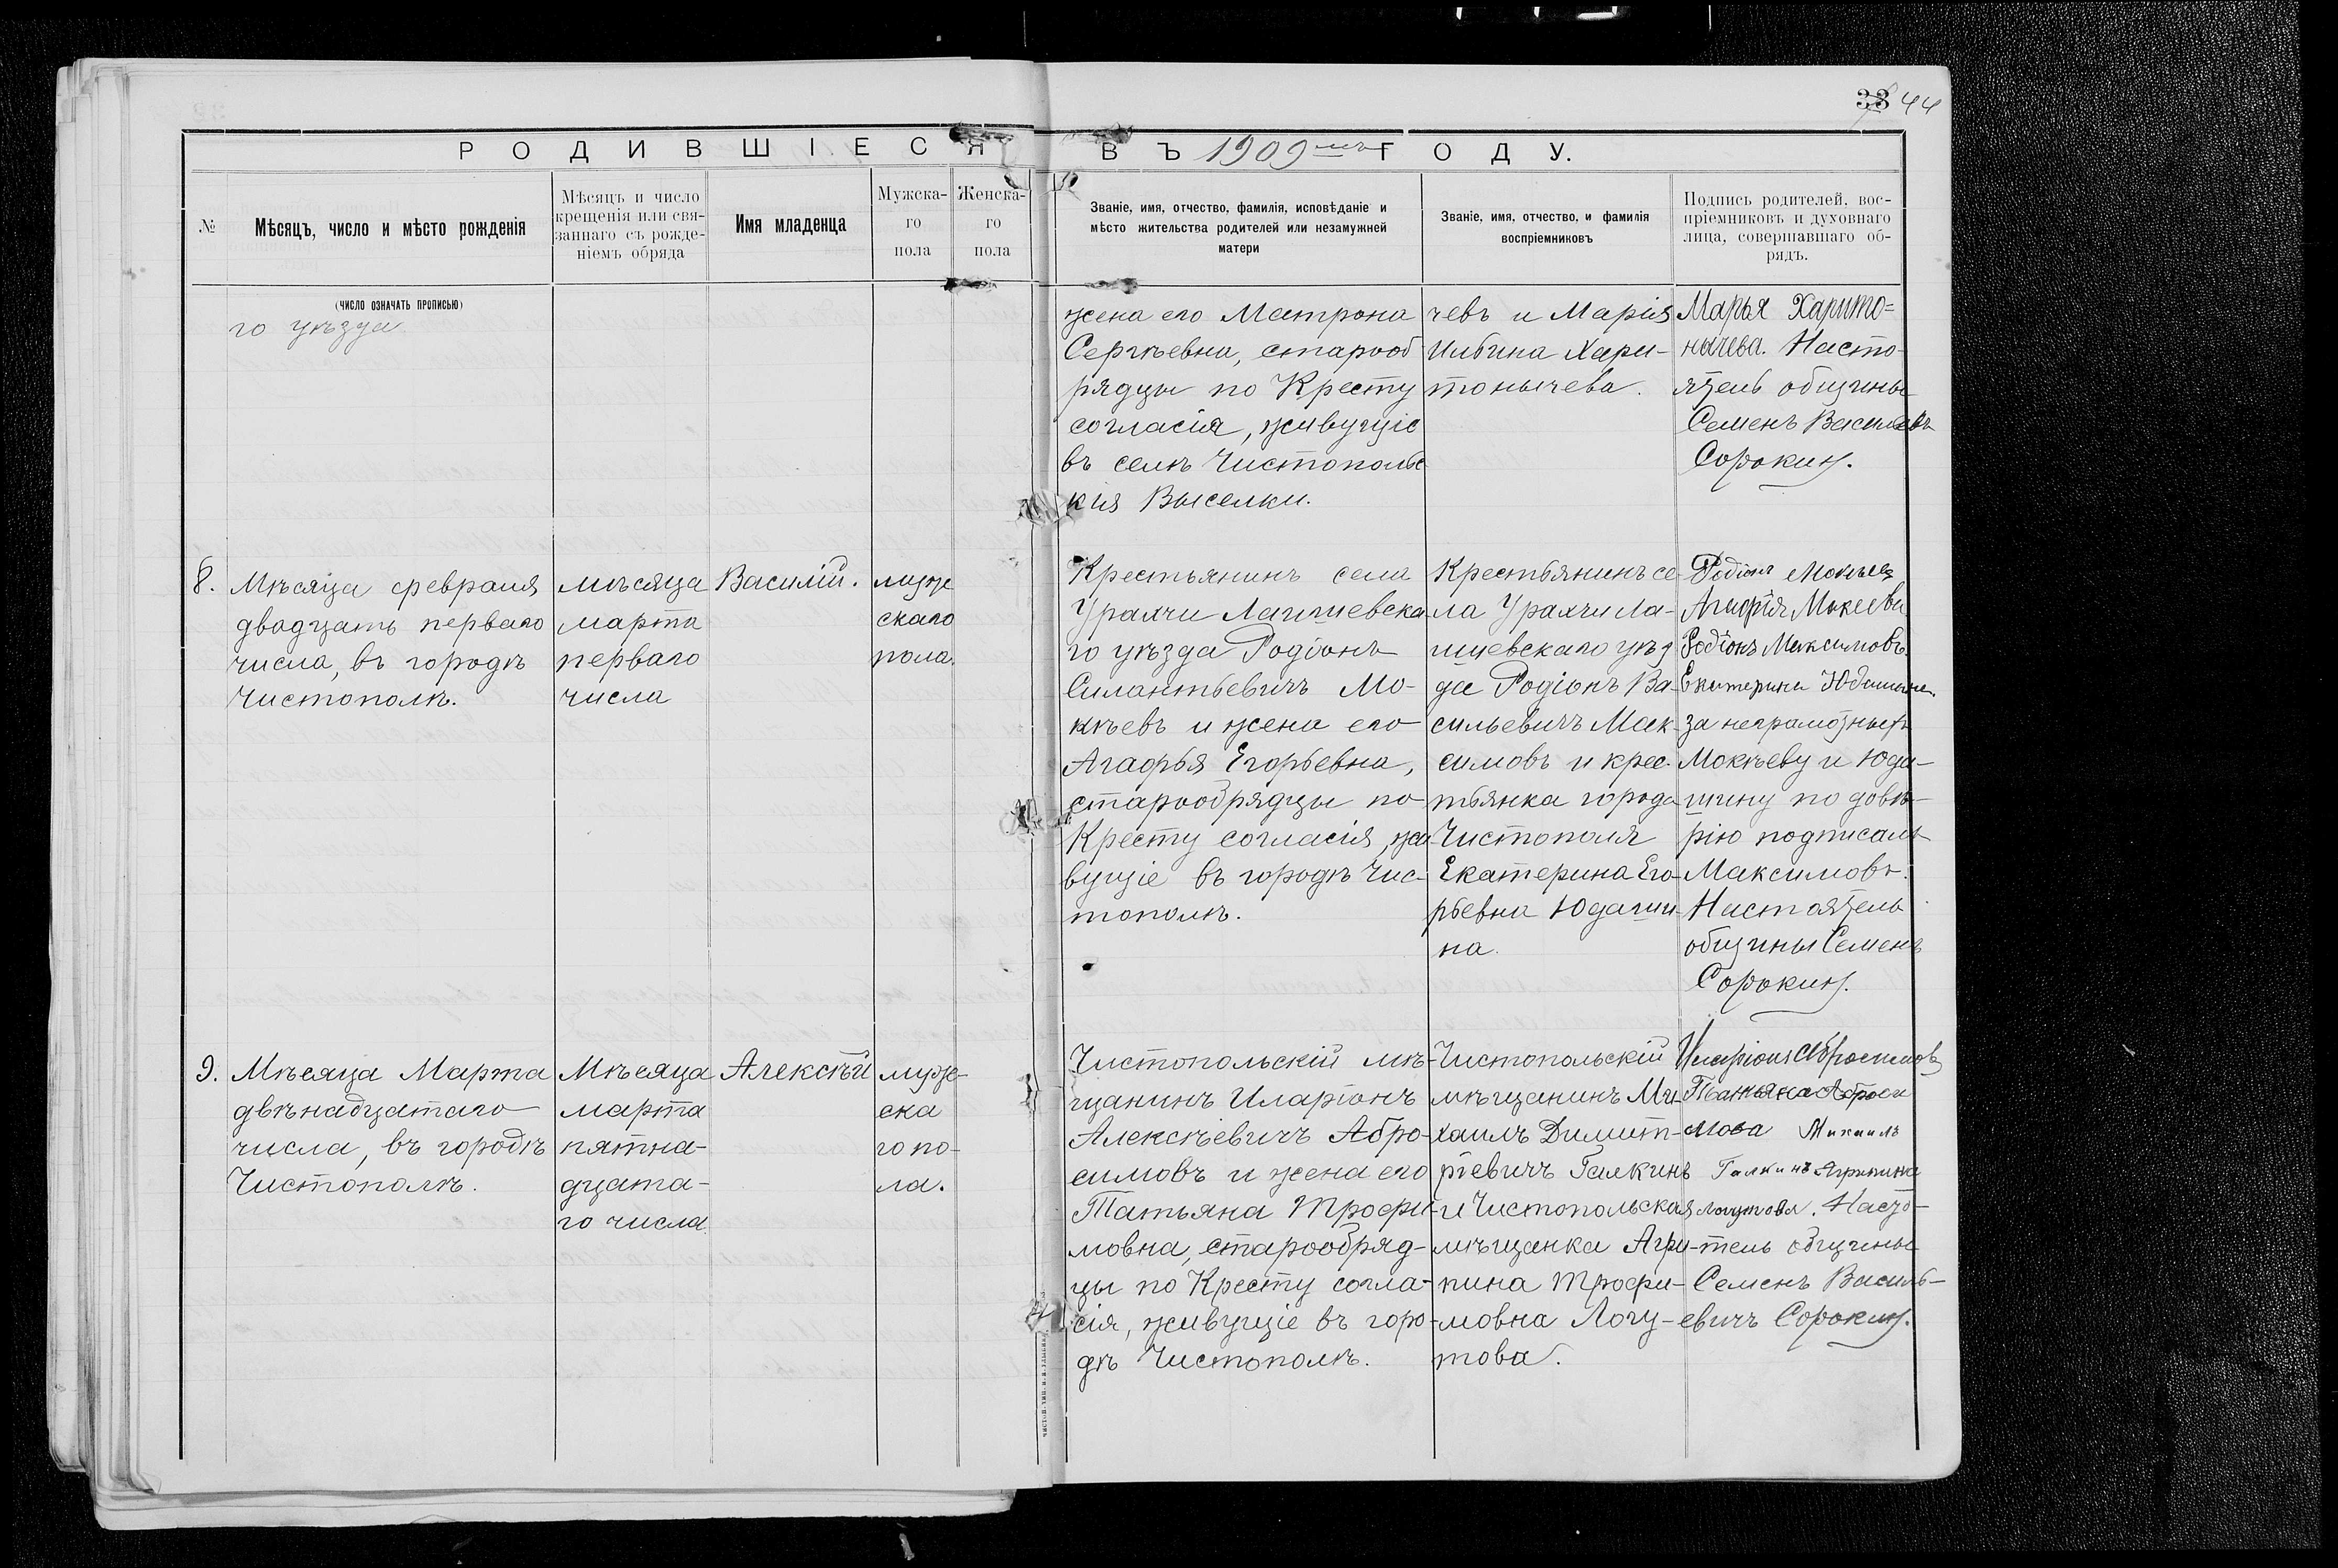 33 44
РОДИВШІЕСЯ ВЪ 1909мъ ГОДУ.
№
Мѣсяцъ, число и мѣсто рожденія
Мѣсяцъ и число
крещенія или свя-
заннаго съ рожде-
ніемъ обряда
Имя младенца
Мужска-
го
пола
Женска-
го
пола
Званіе, имя, отчество, фамилія, исповѣданіе и
мѣсто жительства родителей или незамужней
матери
Званіе, имя, отчество, и фамилія
воспріемниковъ
Подпись родителей, вос-
пріемниковъ и духовнаго
лица, совершавшаго об-
рядъ.
(ЧИСЛО ОЗНАЧАТЬ ПРОПИСЬЮ)
го уѣзда
жена его Матрона
Сергѣевна, старооб
рядцы по Кресту
согласія, живущіе
въ селѣ Чистопольс
кія Выселки.
чевъ и Марія
Ильина Хари-
тонычева.
Марья Харито=
нычева. Насто-
ятель общины
Семенъ Васильевъ
Сорокинъ.
8.
Мѣсяца февраля
двадцать перваго
числа, въ городѣ
Чистополѣ.
мѣсяца
марта
перваго
числа
Василій.
муже
скаго
пола.
Крестьянинъ села
Урахчи Лаишевска
го уѣзда Родіонъ
Силантьевичъ Мо-
кѣевъ и жена его
Агафья Егорьевна,
старообрядцы по
Кресту согласія, жи
вущіе въ городѣ Чис-
тополѣ.
Крестьянинъ се-
ла Урахчи Ла-
ишевскаго уѣз
да Родіонъ Ва-
сильевичъ Мак-
симовъ и крес-
тьянка города
Чистополя
Екатерина Его-
рьевна Юдаши-
на.
Родіонъ Мокѣевъ
Агафія Мокеева
Родіонъ Максимовъ.
Екатерина Юдашина.
за неграмотныхъ
Мокѣеву и Юда-
шину по довѣ-
рію подписалъ
Максимовъ.
Настоятель
общины Семенъ
Сорокинъ.
9.
Мѣсяца Марта
двѣнадцатаго
числа, въ городѣ
Чистополѣ.
Мѣсяца
марта
пятна-
дцата-
го числа
Алексѣй
муж-
ска
го по-
ла.
Чистопольскій мѣ-
щанинъ Иларіонъ
Алексѣевичъ Абро-
симовъ и жена его
Татьяна Трофи-
мовна, старообряд-
цы по Кресту согла-
сія, живущіе въ горо-
дѣ Чистополѣ.
Чистопольскій
мѣщанинъ Ми-
хаилъ Димит-
ріевичъ Галкинъ
и Чистопольская
мѣщанка Агри-
пина Трофи-
мовна Логу-
това.
Иларіонъ Абросимовъ
Татьяна Аброси
мова Михаилъ
Галкинъ Агрипина
Логутова. Насто-
тель общины
Семенъ Василь-
евичъ Сорокинъ.